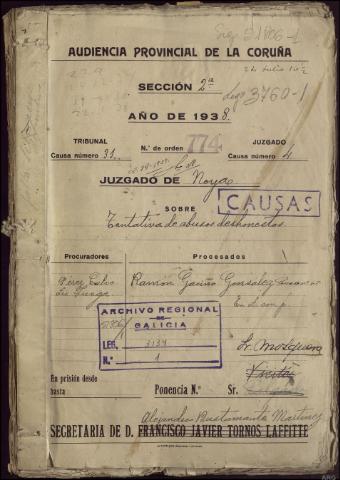 AUDIENCIA PROVINCIAL DE LA CORUÑA
SECCIÓN 2ª
leg. 3760-1
AÑO DE 1938.
TRIBUNAL
Causa número 31.
N.º de orden 774
JUZGADO
Causa número 4
JUZGADO DE Noya
CAUSAS
SOBRE
Tentativa de abusos deshonestos.
Procuradores
Procesados
Pérez
Ramón Gariño González
ARCHIVO REGIONAL
DE
GALICIA
LEG. 3139
N.º 1
Sr. Mosquera
En prisión desde
hasta
Ponencia N.º
Sr.
Alejandro Bustamante Martínez
SECRETARIA DE D. FRANCISCO JAVIER TORNOS LAFFITTE